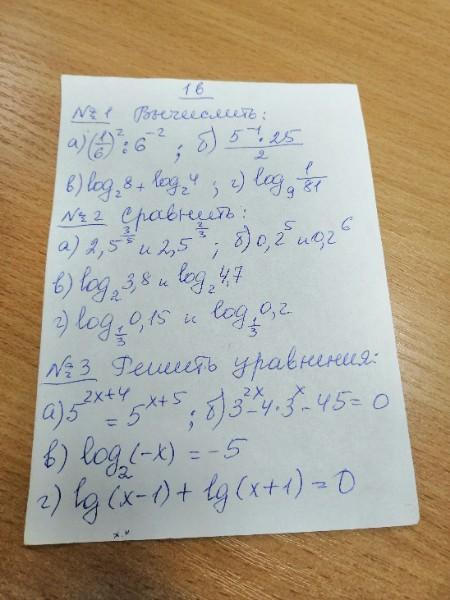 1в
№1 Вычислить:
а) (1/6)² : 6⁻² ; б) (5⁻¹ · 25)/2
в) log₂8 + log₂4 ; г) log₉ 1/81
№2 Сравнить:
а) 2,5^(3/5) и 2,5^(2/3) ; б) 0,2⁵ и 0,2⁶
в) log₂3,8 и log₂4,7
г) log_(1/3) 0,15 и log_(1/3) 0,2
№3 Решить уравнения:
а) 5^(2x+4) = 5^(x+5) ; б) 3^(2x) - 4 · 3^x - 45 = 0
в) log₂(-x) = -5
г) lg(x-1) + lg(x+1) = 0